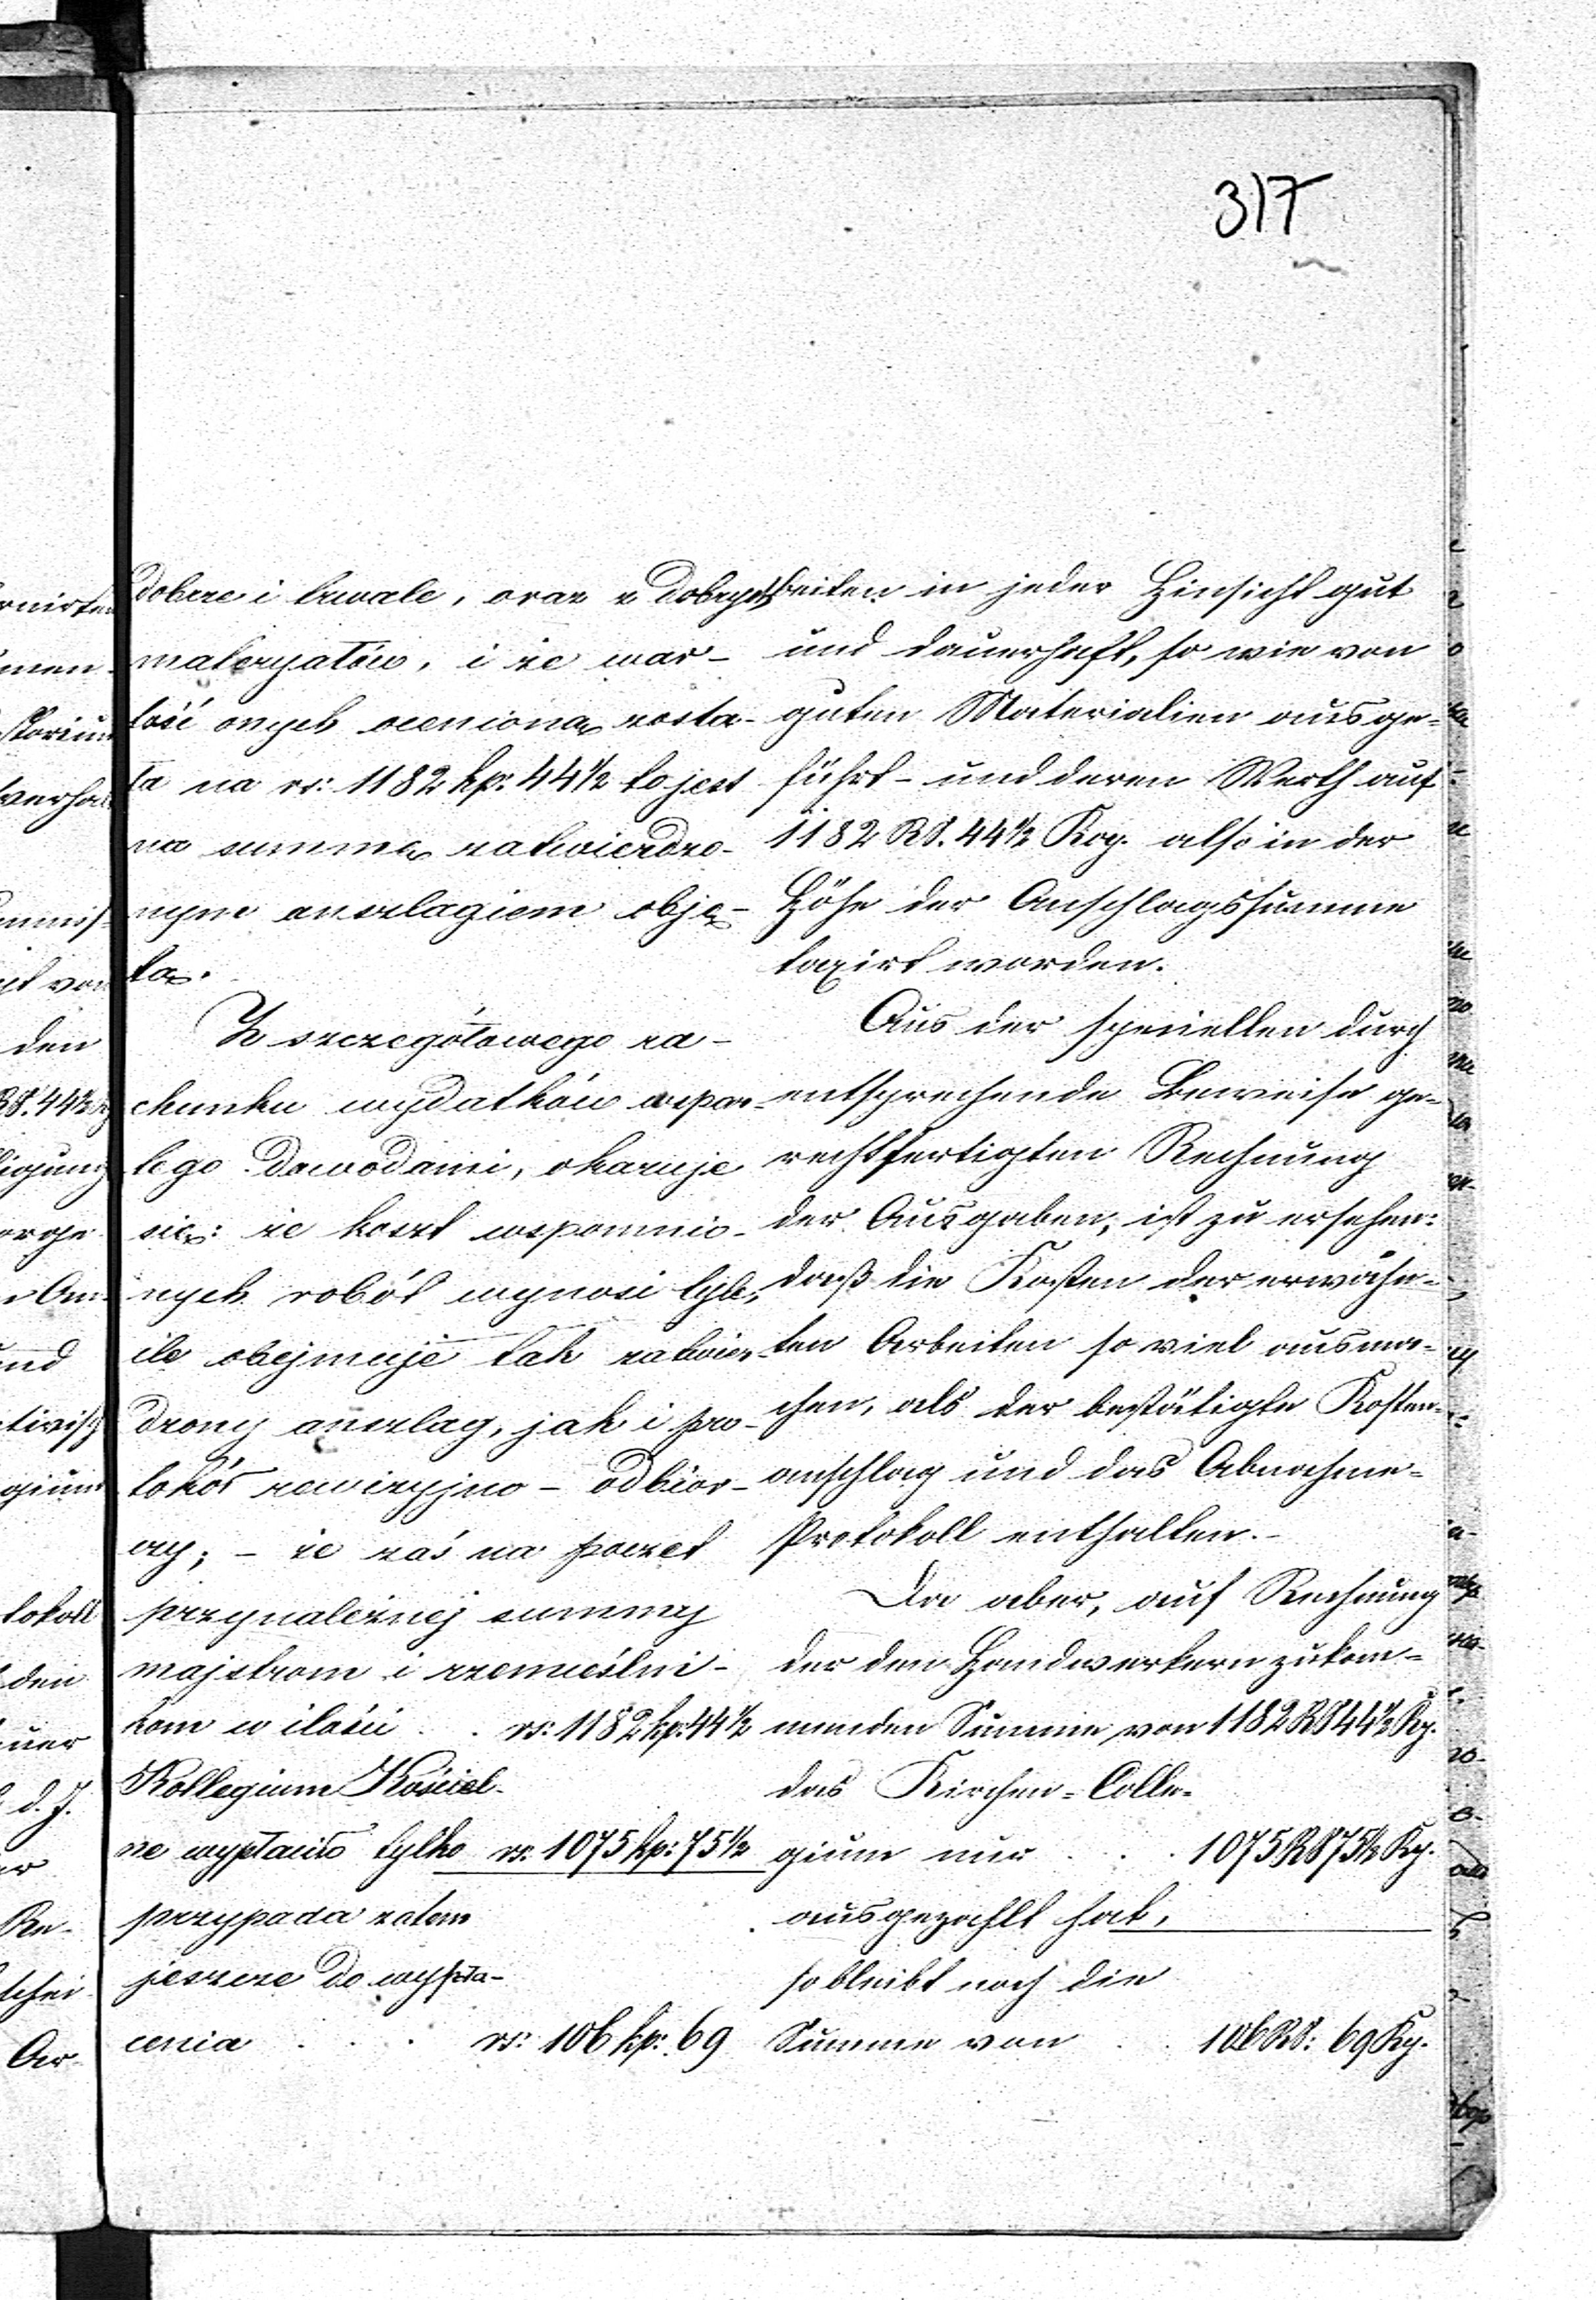 317
dobrze i trwale, oraz z dobrych
materyałów, i że war-
tość onych oceniona zosta-
ła na rs: 1182 kp: 44½ to jest
na summę zatwierdzo-
nym anszlagiem obję-
tą.
Z szczegółowego ra-
chunku wydatków wspar-
tego dowodami, okazuje
się: że koszt wspomnio-
nych robót wynosi tyle,
ile obejmuje tak zatwier-
dzony anszlag, jak i pro-
tokół rewizyjno - odbior-
czy; - że zaś na poczet
przynależnej summy
majstrom i rzemieślni-
kom w ilości . . rs: 1182 kp: 44½
Kollegium Koście<l>l-
ne wypłaciło tylko rs. 1075 kp: 75½
przypada zatem
jeszcze do wypła-
cenia . . . rs: 106 kp: 69
beiten in jeder Hinsicht gut
und dauerhaft, so wie von
guten Materialien ausge-
führt - und deren Werth auf
1182 RS. 44½ Kop. also in der
Höhe der Anschlagssumme
taxirt worden.
Aus der speciellen durch
entsprechende Beweise ge-
rechtfertigten Rechnung
der Ausgaben, ist zu ersehen:
daß die Kosten der erwähn-
ten Arbeiten so viel ausma-
chen, als der bestätigte Kosten-
anschlag und das Abnahme-
Protokoll enthalten.-
Da aber, auf Rechnung
der den Handwerkern zukom-
menden Summe von 1182 RS 44½ Kop.
das Kirchen-Colle-
gium nur . . . 1075 RS 75½ Kp.
ausgezahlt hat,
so bleibt noch die
Summe von . . 106 RS: 69 Kp.